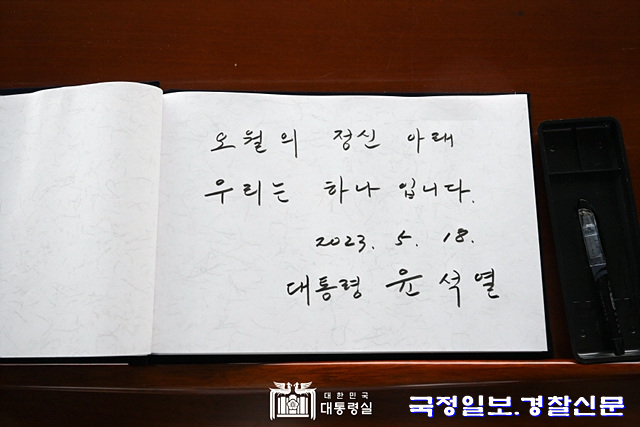 오월의 정신 아래
우리는 하나입니다.
2023. 5. 18.
대통령 윤석열
대한민국
대통령실
국정일보.경찰신문